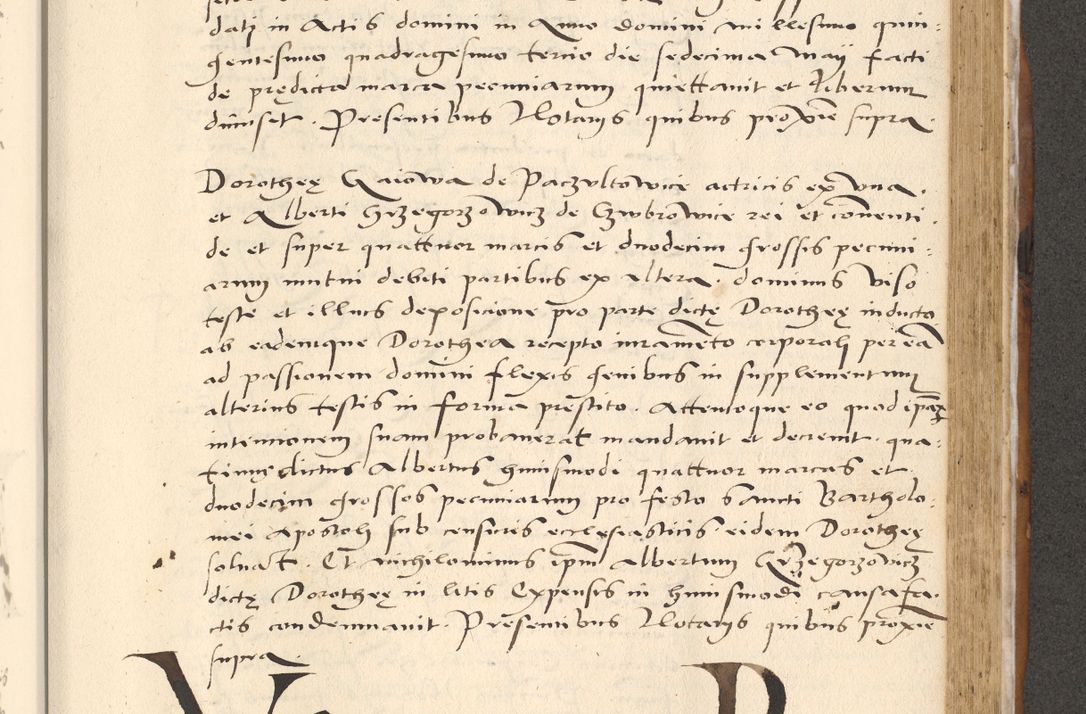 datj in Actis domini in Anno domini millesimo quin:
gentesimo quadragesimo tercio die sedecima Maij facti
de prędicta marca pecuniarum quiettauit et liberum
dimisit. Presentibus Notarijs quibus proxie supra.
Dorotheę Gaiowa de Paczultowice actricis ex vna.
et Alberti Grzegorzowicz de Czubrowice rei et conuenti.
de et super quattuor marcis et duodecim grossis pecuni:
arum mutui debiti partibus ex altera. dominus viso
teste et illius deposicione pro parte dictę Dorotheę inducto
ab eademque Dorothea recepto iuramēto corporali per eā
ad passionem domini flexis genibus in supplementum
alterius testis in forma prestito. Attentoque eo quod
intencionem suam probauerat mandauit et decreuit. qua:
tinus dictus Albertus huiusmodi quattuor marcas et
duodecim grossos pecuniarum pro festo sancti Bartholo:
mei Apostoli sub censuris ecclęsiasticis eidem Dorotheę
soluat. Et nichilominus ipm̄ Albertum Grzegorzowicz
dictę Dorotheę in litis Expensis in huiusmodi causa fa:
ctis condemnauit. Presentibus Notarijs quibus proxie
supra.